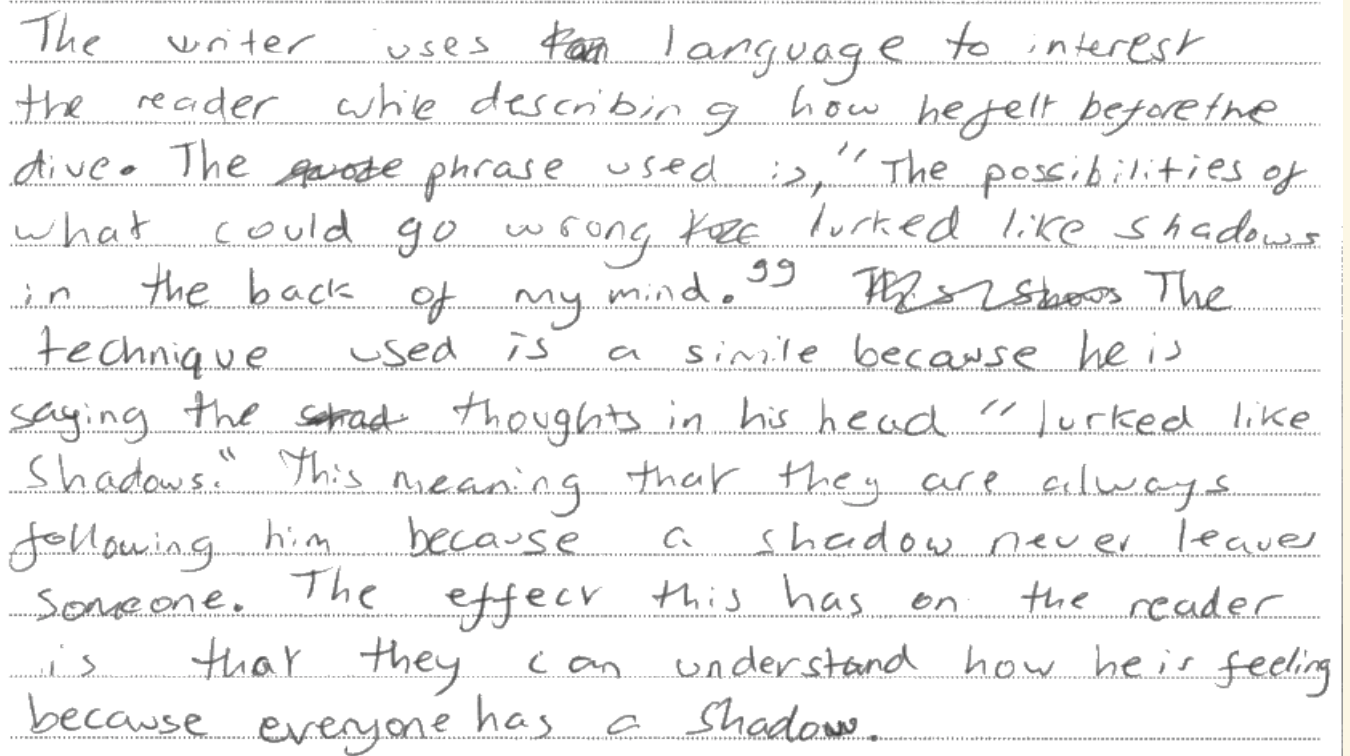 The writer uses language to interest
the reader while describing how he felt before the
dive. The quote phrase used is, "The possibilities of
what could go wrong lurked like shadows
in the back of my mind." Shows The
technique used is a simile because he is
saying the shad thoughts in his head "lurked like
Shadows." This meaning that they are always
following him because a shadow never leaves
someone. The effect this has on the reader
is that they can understand how he is feeling
because everyone has a shadow.